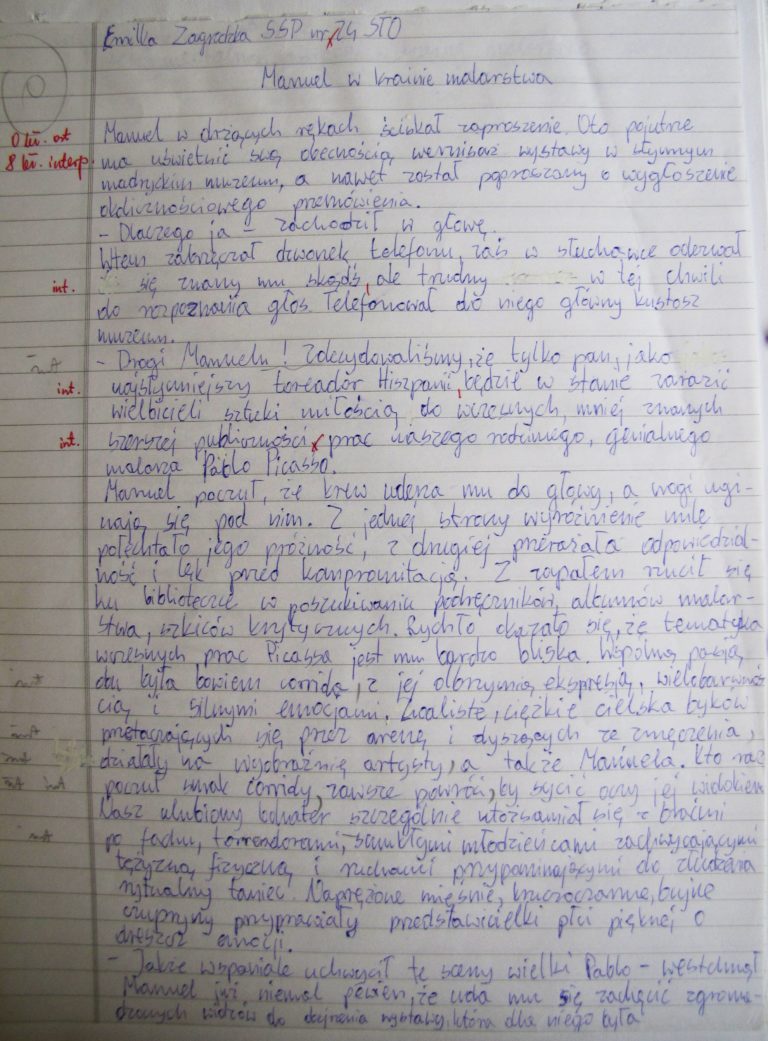 Emilka Zagrodzka SSP nr 24 STO
Manuel w krainie malarstwa
0 bł. ort
8 bł. interp.
Manuel w drżących rękach ściskał zaproszenie. Oto pojutrze
ma uświetnić swą obecnością wernisaż wystawy w słynnym
madryckim muzeum, a nawet został poproszony o wygłoszenie
okolicznościowego przemówienia.
- Dlaczego ja - zachodził w głowę.
Wtem zabrzęczał dzwonek telefonu, zaś w słuchawce odezwał
int. się znany mu skądś, ale trudny w tej chwili
do rozpoznania głos. Telefonował do niego główny kustosz
muzeum.
- Drogi Manuelu! Zdecydowaliśmy, że tylko pan, jako
int. najsłynniejszy toreador Hiszpanii, będzie w stanie zarazić
wielbicieli sztuki miłością do wczesnych, mniej znanych
int. szerszej publiczności prac naszego rodzimego, genialnego
malarza Pablo Picasso.
Manuel poczuł, że krew uderza mu do głowy, a nogi ugi-
nają się pod nim. Z jednej strony wyróżnienie mile
połechtało jego próżność, z drugiej przerażała odpowiedzial-
ność i lęk przed kompromitacją. Z zapałem rzucił się
ku biblioteczce w poszukiwaniu podręczników, albumów malar-
stwa, szkiców krytycznych. Rychło okazało się, że tematyka
wczesnych prac Picassa jest mu bardzo bliska. Wspólną pasją
obu była bowiem corrida, z jej olbrzymią ekspresją, wielobarwnoś-
cią i silnymi emocjami. Zwaliste, ciężkie cielska byków
przetaczających się przez arenę i dyszących ze zmęczenia,
działały na wyobraźnię artysty, a także Manuela. Kto raz
poczuł smak corridy, zawsze powróci, by sycić oczy jej widokiem.
Nasz ulubiony bohater szczególnie utożsamiał się z braćmi
po fachu, torreadorami, smukłymi młodzieńcami zachwycającymi
tężyzną fizyczną i ruchami przypominającymi do złudzenia
rytualny taniec. Naprężone mięśnie, kruczoczarne, bujne
czupryny przyprawiały przedstawicielki płci pięknej o
dreszcz emocji.
- Jakże wspaniale uchwycił te sceny wielki Pablo - westchnął
Manuel już niemal pewien, że uda mu się zachęcić zgroma-
dzonych widzów do obejrzenia wystawy, która dla niego była